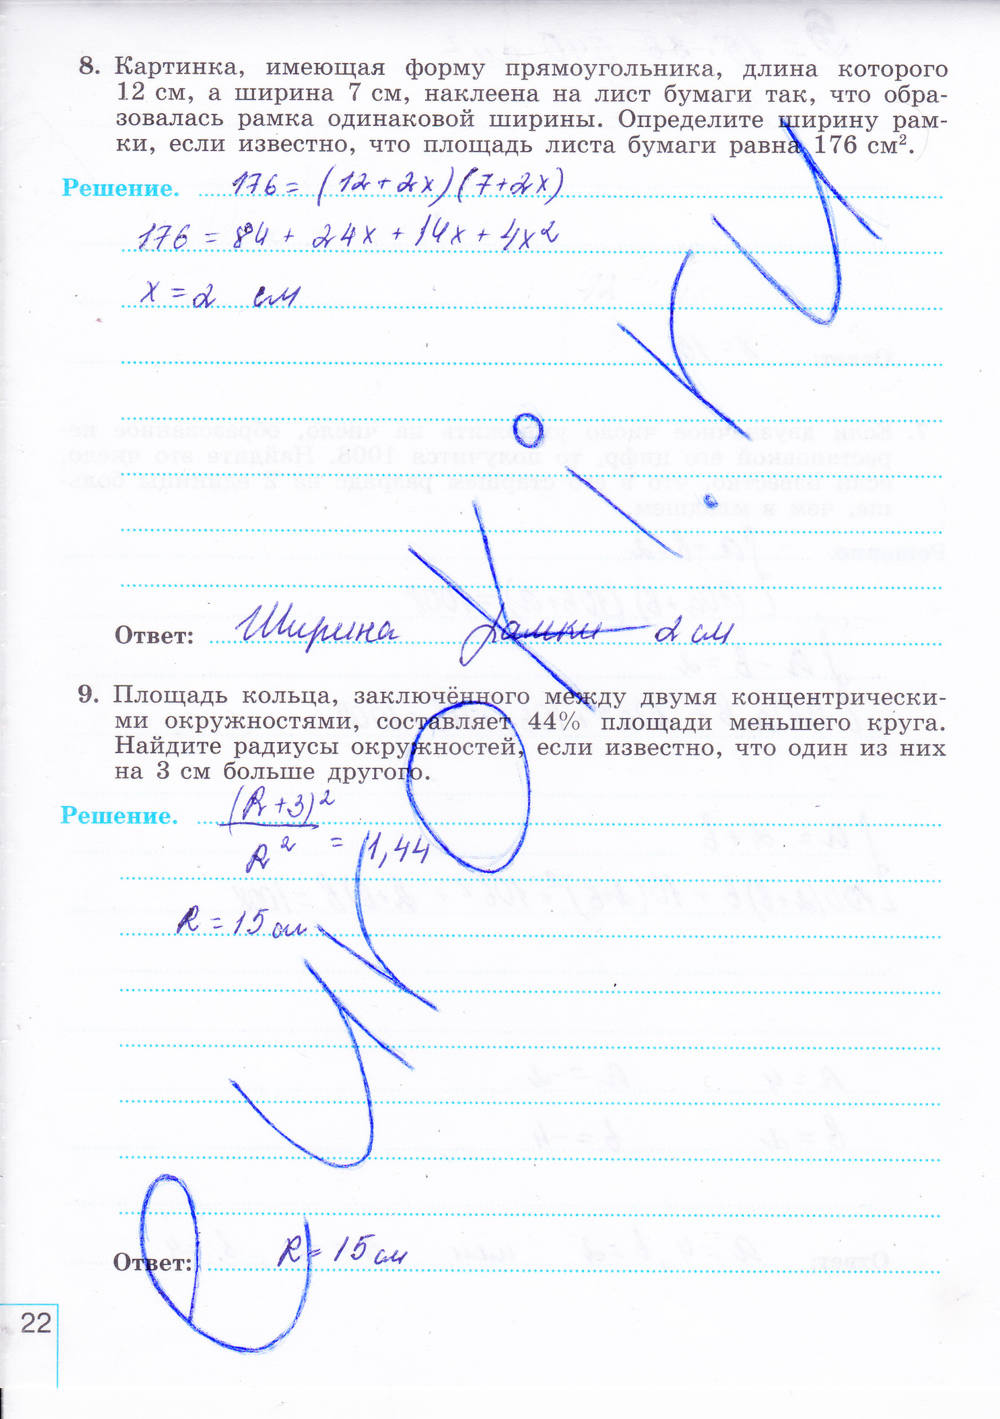 8. Картинка, имеющая форму прямоугольника, длина которого
12 см, а ширина 7 см, наклеена на лист бумаги так, что обра-
зовалась рамка одинаковой ширины. Определите ширину рам-
ки, если известно, что площадь листа бумаги равна 176 см².
Решение. 176 = (12 + 2x)(7 + 2x)
176 = 84 + 24x + 14x + 4x²
x = 2 см
Ответ: Ширина рамки 2 см
9. Площадь кольца, заключённого между двумя концентрически-
ми окружностями, составляет 44% площади меньшего круга.
Найдите радиусы окружностей, если известно, что один из них
на 3 см больше другого.
Решение. (R+3)²
R² = 1,44
R = 15 см
Ответ: R = 15 см
22